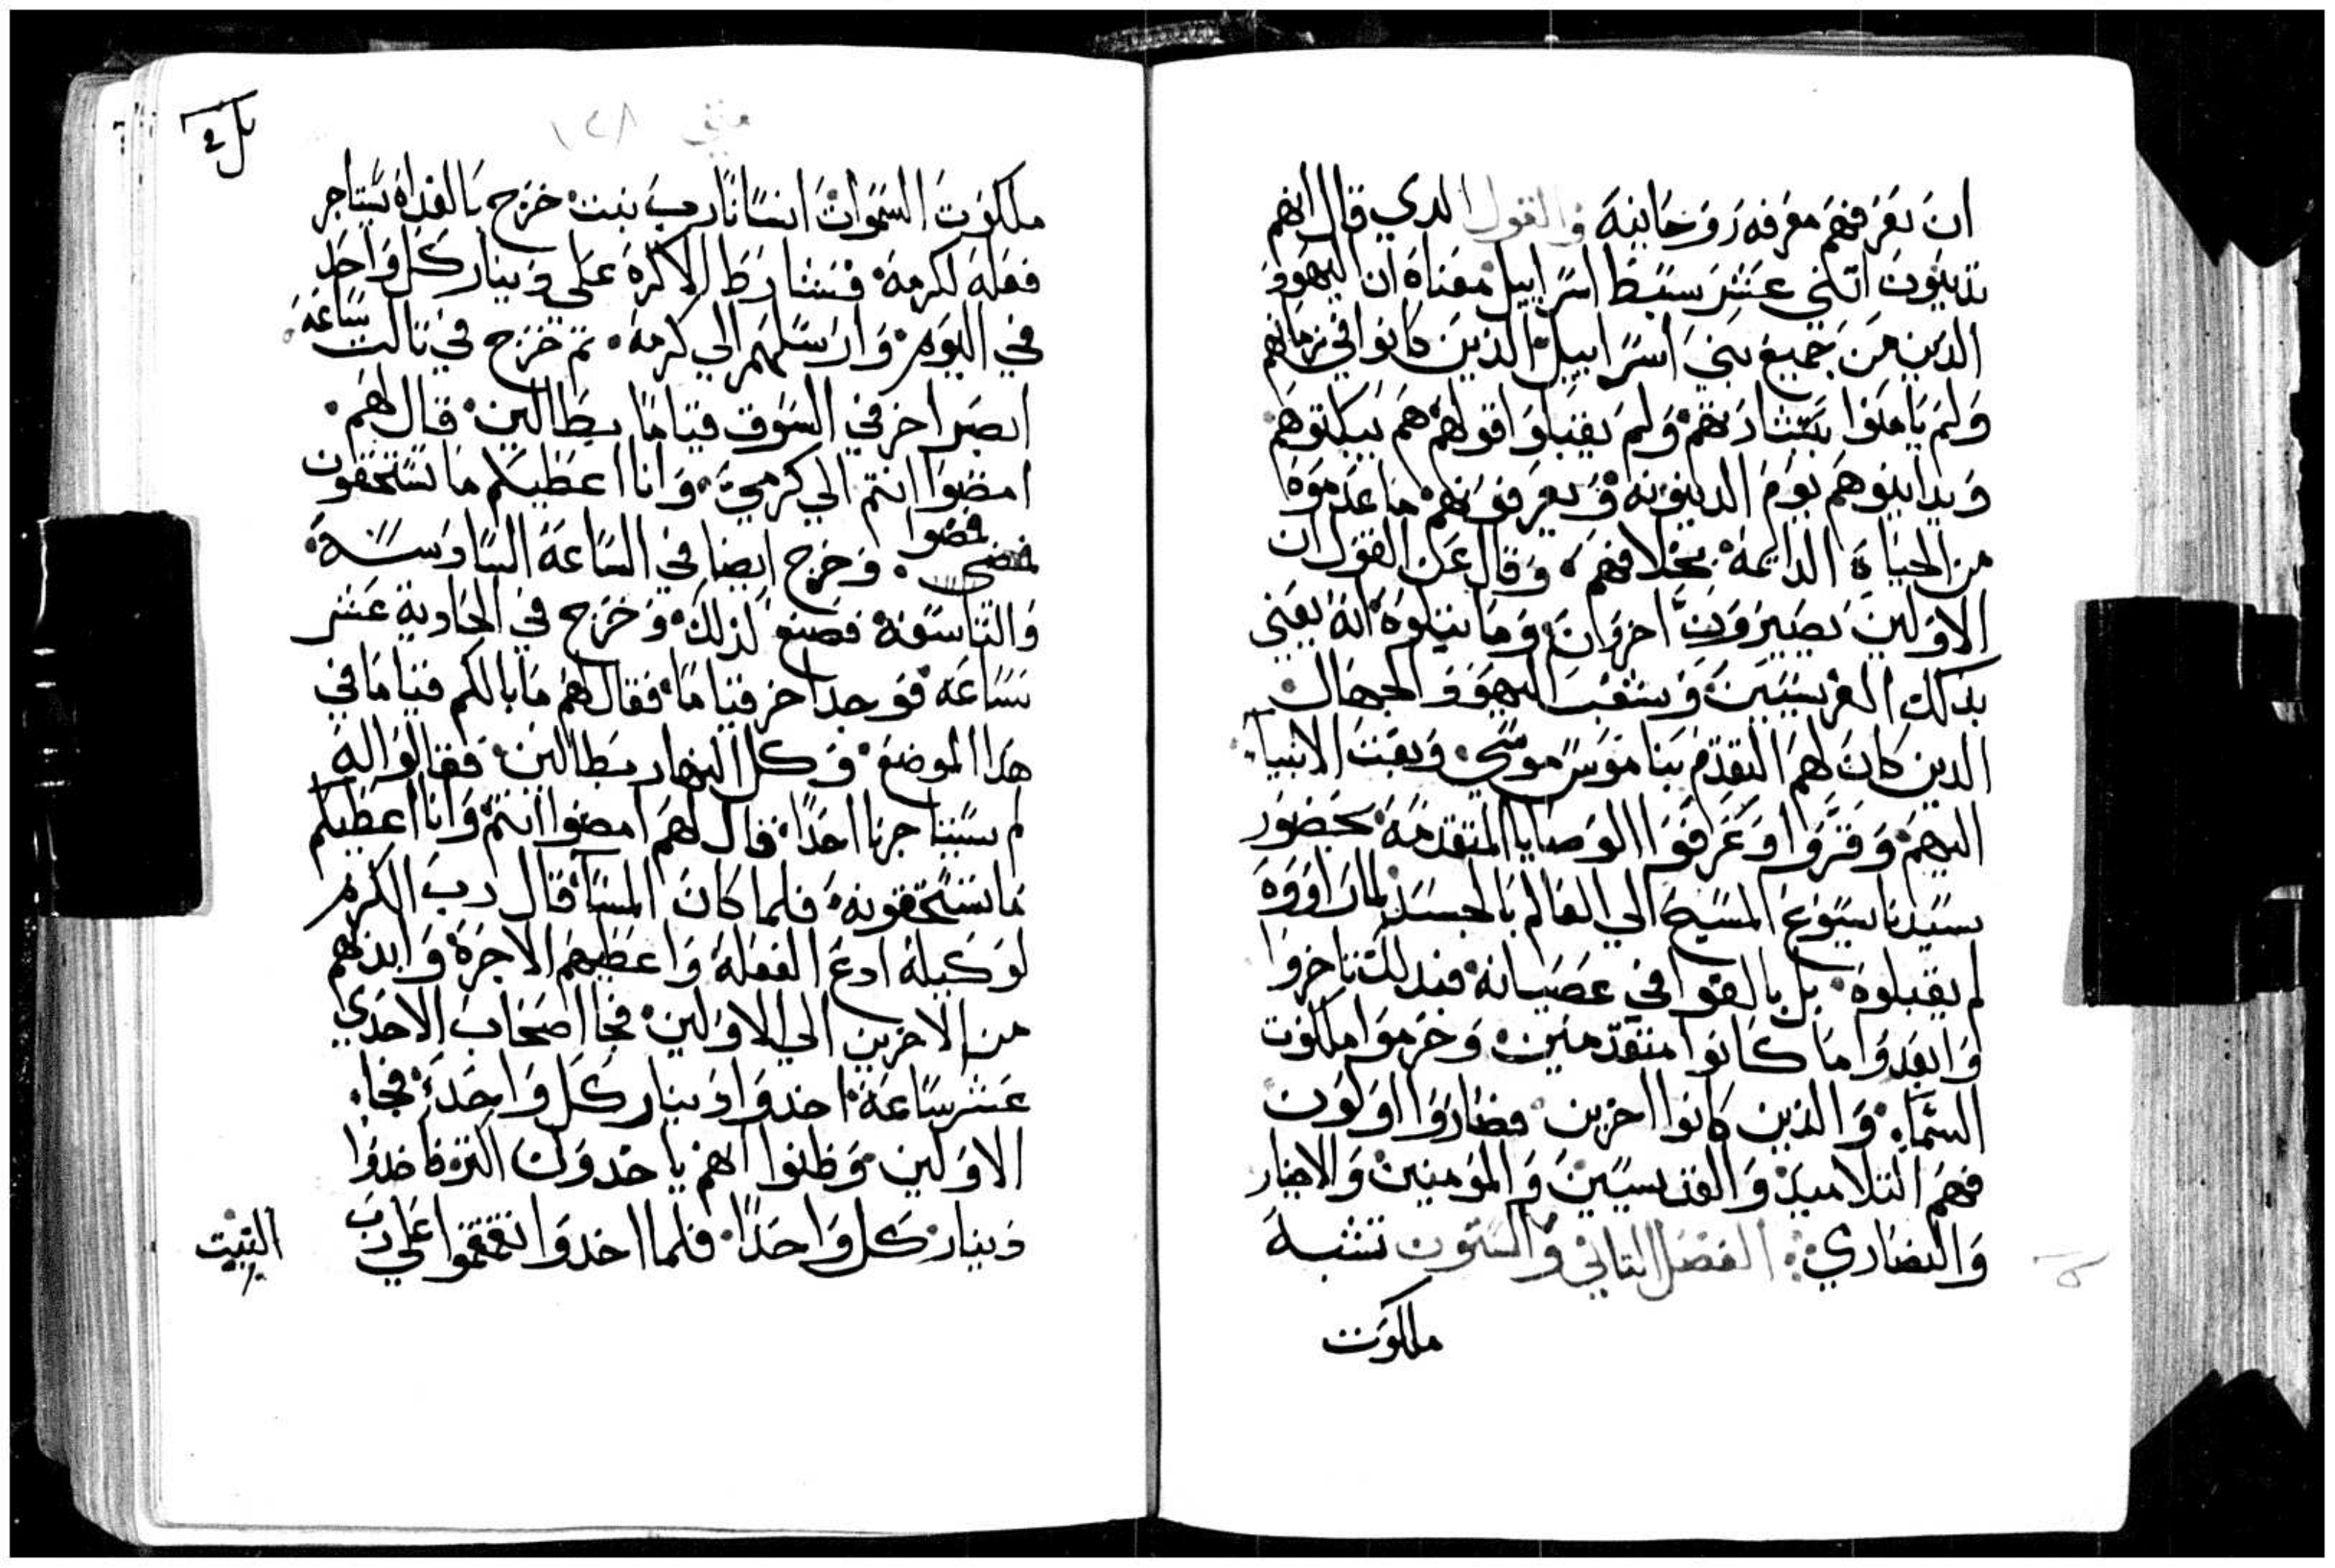 ان تعرفهم معرفه روحانيه والقول الدي قال انهم
تدينون اتني عشر سبط اسراييل معناه ان اليهود
الدين من جميع بني اسراييل الذين كانوا في زمانهم
ولم يامنوا ببشارتهم ولم يقبلوا قولهم هم يبكتوهم
ويداينوهم يوم الدينونه ويعرفونهم ما عدموه
من الحياة الدايمة بخلافهم وقال عن القول ان
الاولين يصيرون اخروان وما يتلوه انه يعني
بدلك الفريسيين وشعب اليهود والجهال
الدين كان لهم التقدم بناموس موسي وبعت الانبياء
اليهم وقروا وعرفوا الوصايا المتقدمة بحضور
سيدنا يسوع المسيح الي العالم بالجسد لما راووه
لم يقبلوه بل بالغوا في عصيانه فبدلك تاخروا
وابعدوا ما كانوا متقدمين وحرموا ملكوت
السماء والذين كانوا اخرين فصاروا اولون
فهم التلاميد والقديسين والمومنين والاخيار
والنصاري الفصل التاني والستون تشبه
ملكوت
متي ١٢٨
ملكوت السموات انسانا رب بيت خرج بالغداه يستاجر
فعله لكرمه فشارط الاكرة علي دينار كل واحد
في اليوم وارسلهم الي كرمه تم خرج في تالت ساعة
ابصر اخر في السوق قياما بطالين قال لهم
امضوا انتم الي كرمي وانا اعطيكم ما تستحقون
فمضوا وخرج ايضا في الساعة السادسة
والتاسعة فصنع لذلك وخرج في الحادية عشر
ساعة فوجد اخر قياما فقال لهم ما بالكم قياما في
هدا الموضع وكل النهار بطالين فقالوا له
لم يستاجرنا احدا قال لهم امضوا انتم وانا اعطيكم
ما تستحقونه فلما كان المسا قال رب الكرم
لوكيله ادع الفعله واعطيهم الاجرة وابدهم
من الاخرين الي الاولين فجا اصحاب الاحدي
عشر ساعة اخدوا دينار كل واحد فجاء
الاولين وظنوا انهم ياخدون اكتر فاخدوا
دينار كل واحدا فلما اخدوا تقمقموا علي رب
البيت